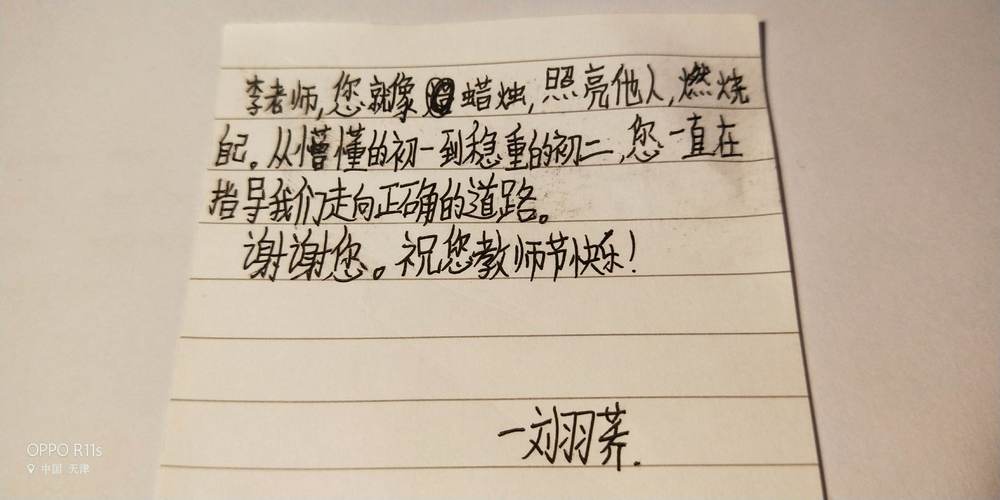 李老师,您就像蜡烛,照亮他人,燃烧
自己。从懵懂的初一到稳重的初二,您一直在
指导我们走向正确的道路。
谢谢您。祝您教师节快乐!
一刘羽荞.
OPPO R11s
中国 天津